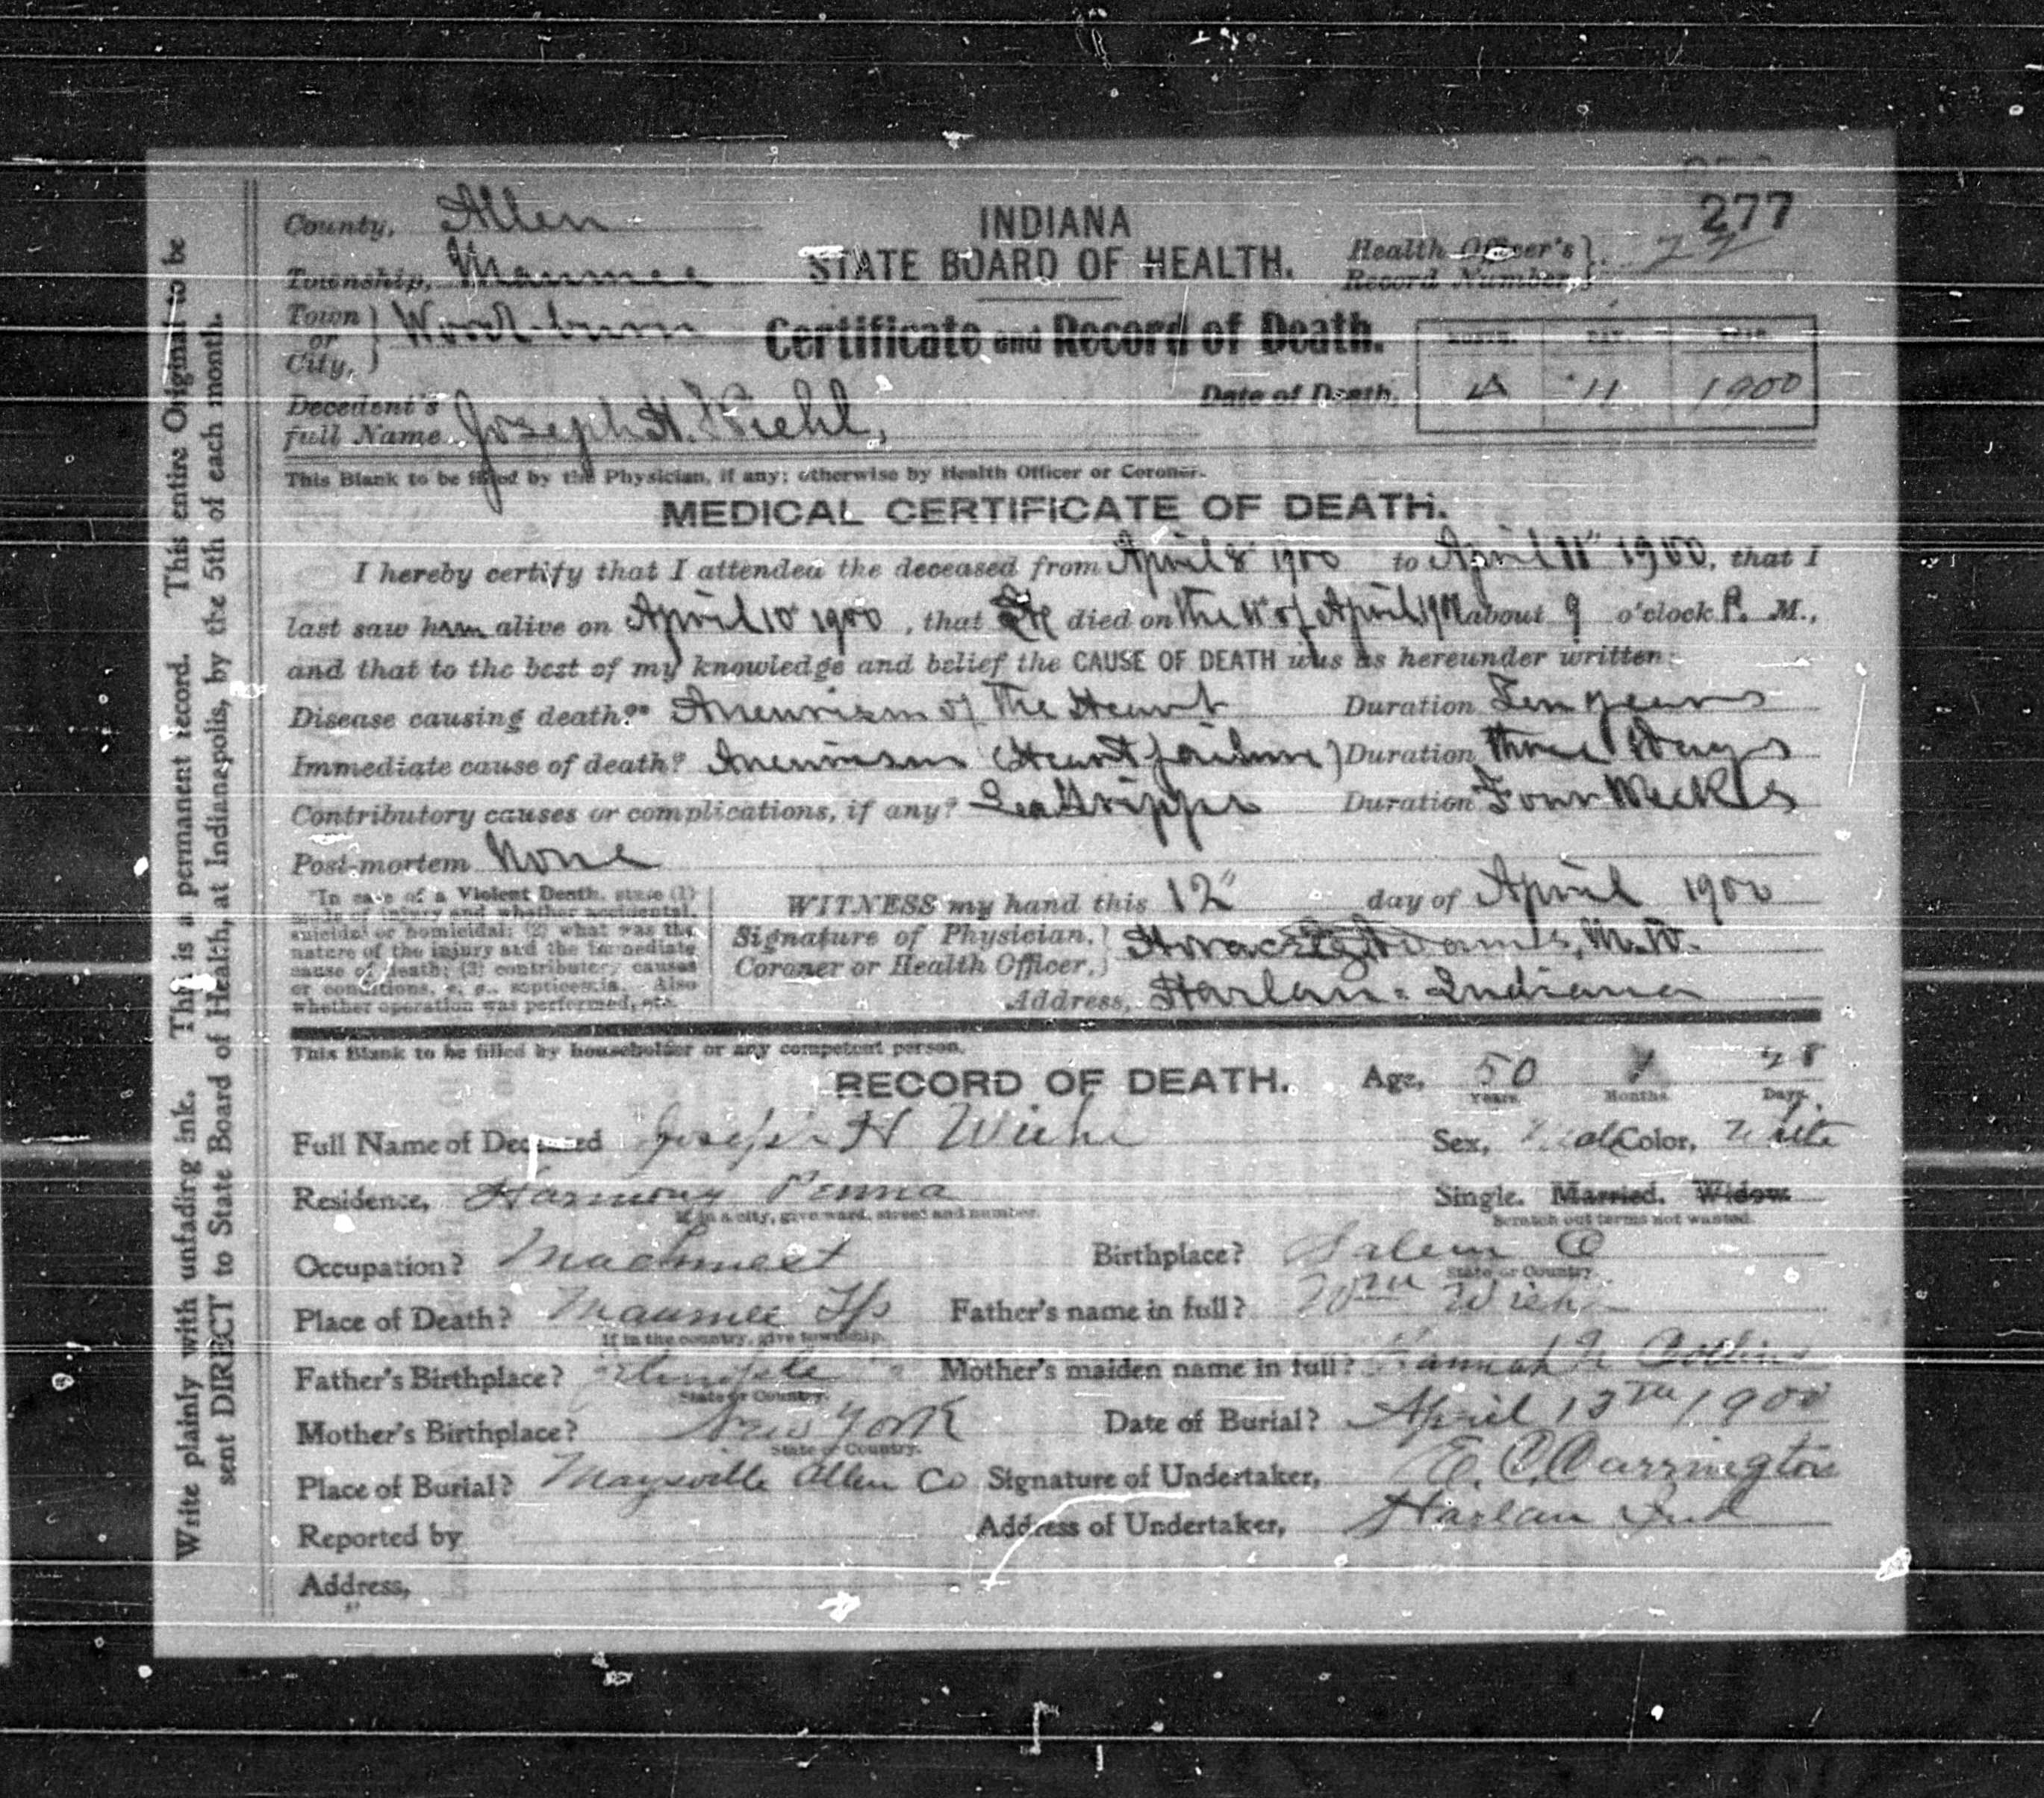 277
County, Allen
INDIANA
STATE BOARD OF HEALTH.
Health Officer's Record Number, 22
Township, Maumee
Town or City, Woodburn
Certificate and Record of Death.
MONTH. DAY. YEAR.
Date of Death, 4 11 1900
Decedent's full Name Joseph H. Wiehl,
This Blank to be filled by the Physician, if any; otherwise by Health Officer or Coroner.
MEDICAL CERTIFICATE OF DEATH.
I hereby certify that I attended the deceased from April 8" 1900 to April 11" 1900, that I
last saw him alive on April 10" 1900, that He died on the 11" of April 1900 about 9 o'clock P. M.,
and that to the best of my knowledge and belief the CAUSE OF DEATH was as hereunder written:
Disease causing death?* Aneurism of The Heart Duration Ten years
Immediate cause of death? Aneurism (Heart failure) Duration three Days
Contributory causes or complications, if any? LaGrippe Duration Four Weeks
Post-mortem None
*In case of a Violent Death, state (1)
mode of injury and whether accidental,
suicidal or homicidal; (2) what was the
nature of the injury and the immediate
cause of death; (3) contributory causes
or conditions, e. g., septicemia. Also
whether operation was performed, etc.
WITNESS my hand this 12" day of April 1900
Signature of Physician, Coroner or Health Officer, Horace E. Adams, M.D.
Address, Harlan - Indiana
This Blank to be filled by householder or any competent person.
RECORD OF DEATH. Age, 50 Years. Months. 28 Days.
Full Name of Deceased Joseph H Wiehl
Sex, Male Color, White
Residence, Harmony Penna
If in a city, give ward, street and number.
Single. Married. Widow.
Scratch out terms not wanted.
Occupation? Machinest
Birthplace? Salem O
State or Country.
Place of Death? Maumee Tp
If in the country, give township.
Father's name in full? Wm Wiehl
Father's Birthplace?
State or Country.
Mother's maiden name in full? Hannah Collins
Mother's Birthplace? New York
State or Country.
Date of Burial? April 13TH 1900
Place of Burial? Maysville Allen Co
Signature of Undertaker, E. C. Carrington
Reported by
Address of Undertaker, Harlan Ind
Address,
Write plainly with unfading ink. This is a permanent record. This entire Original to be
sent DIRECT to State Board of Health, at Indianapolis, by the 5th of each month.